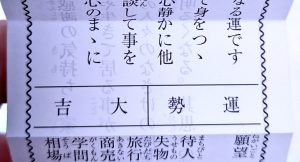 なる運です
て身をつゝ
心静かに他
談して事を
心のまゝに
運勢
大吉
願望
待人
失物
旅行
商売
学問
相場